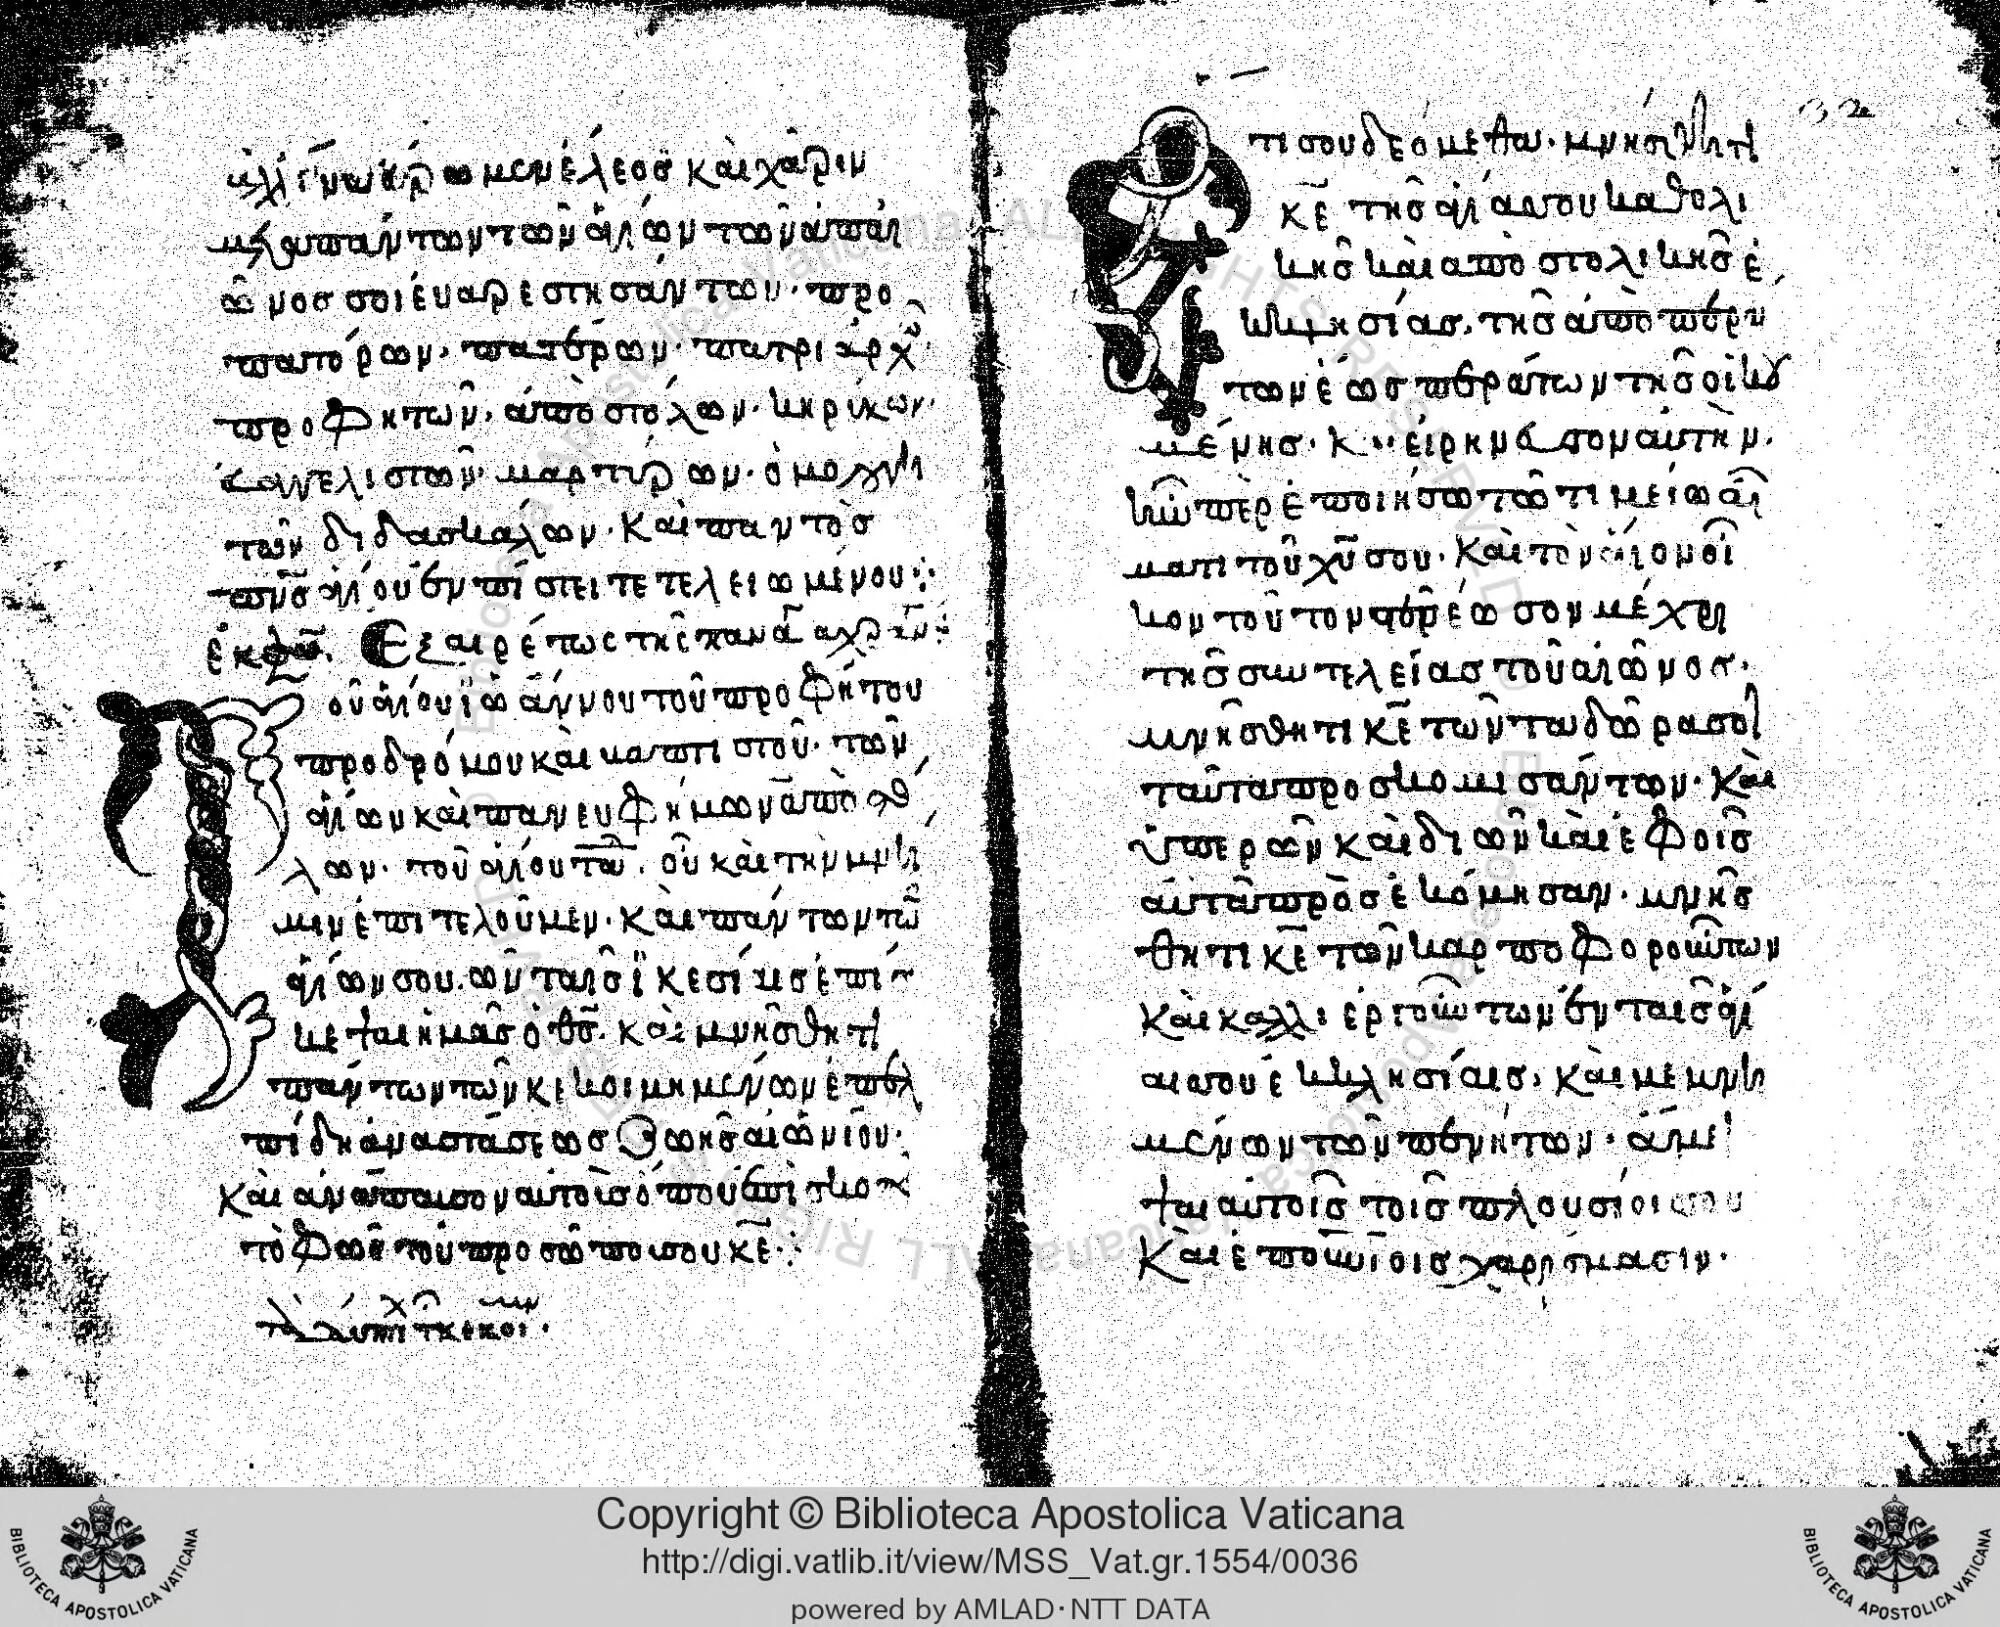 ἀλλ' ἵνα εὕρωμεν ἔλεος καὶ χάριν
μετὰ πάντων τῶν ἁγίων τῶν ἀπ' αἰ
ῶνος σοι εὐαρεστησάντων· προ
πατόρων· πατέρων· πατριαρχ
προφητῶν· ἀποστόλων· κηρύκων·
εὐαγγελιστῶν· μαρτύρων· ὁμολογη
τῶν διδασκάλων· καὶ παντὸς
πνς ἁγίου ἐν πίστει τετελειωμένου:
ἐκφω. Ἐξαιρέτως τῆς παναγ ἀχρ
Τοῦ ἁγίου ἰωάννου τοῦ προφήτου
προδρόμου καὶ βαπτιστοῦ· τῶν
ἁγίων καὶ πανευφήμων ἀποστό
λων· τοῦ ἁγίου τοῦ. οὗ καὶ τὴν μνή
μην ἐπιτελοῦμεν· καὶ πάντων τῶν
ἁγίων σου. ὧν ταῖς ἱκεσίαις ἐπί
σκεψαι ἡμᾶς ὁ θς. καὶ μνήσθητι
πάντων τῶν κεκοιμημένων ἐπ' ἐλ
πίδι ἀναστάσεως ζωῆς αἰωνίου.
καὶ ἀνάπαυσον αὐτοὺς ὅπου ἐπισκοπεῖ
τὸ φῶς τοῦ προσώπου σου κε:
Ἔτι σου δεόμεθα· μνήσθητι
κε τῆς ἁγίας σου καθολι
κῆς καὶ ἀποστολικῆς ἐκ
κλησίας. τῆς ἀπὸ περά
των ἕως περάτων τῆς οἰκου
μένης· καὶ εἰρήνευσον αὐτὴν.
ἣν περιεποιήσω τῶ τιμίω αἵ
ματι τοῦ χυ σου· καὶ τὸν ἅγιον οἶ
κον τοῦτον στερέωσον μέχρι
τῆς συντελείας τοῦ αἰῶνος·
μνήσθητι κε τῶν τὰ δῶρά σοι
ταῦτα προσκομισάντων· καὶ
ὑπὲρ ὧν καὶ δι' ὧν καὶ ἐφ' οἷς
αὐτὰ προσεκόμισαν· μνήσ
θητι κε τῶν καρποφορούντων
καὶ καλλιεργούντων ἐν ταῖς ἁγί
αις σου ἐκκλησίαις· καὶ μεμνη
μένων τῶν πενήτων· ἄμει
ψαι αὐτοῖς τοῖς πλουσίοις σου
καὶ ἐπουρανίοις χαρίσμασιν·
Copyright © Biblioteca Apostolica Vaticana
http://digi.vatlib.it/view/MSS_Vat.gr.1554/0036
powered by AMLAD·NTT DATA
BIBLIOTECA APOSTOLICA VATICANA
BIBLIOTECA APOSTOLICA VATICANA